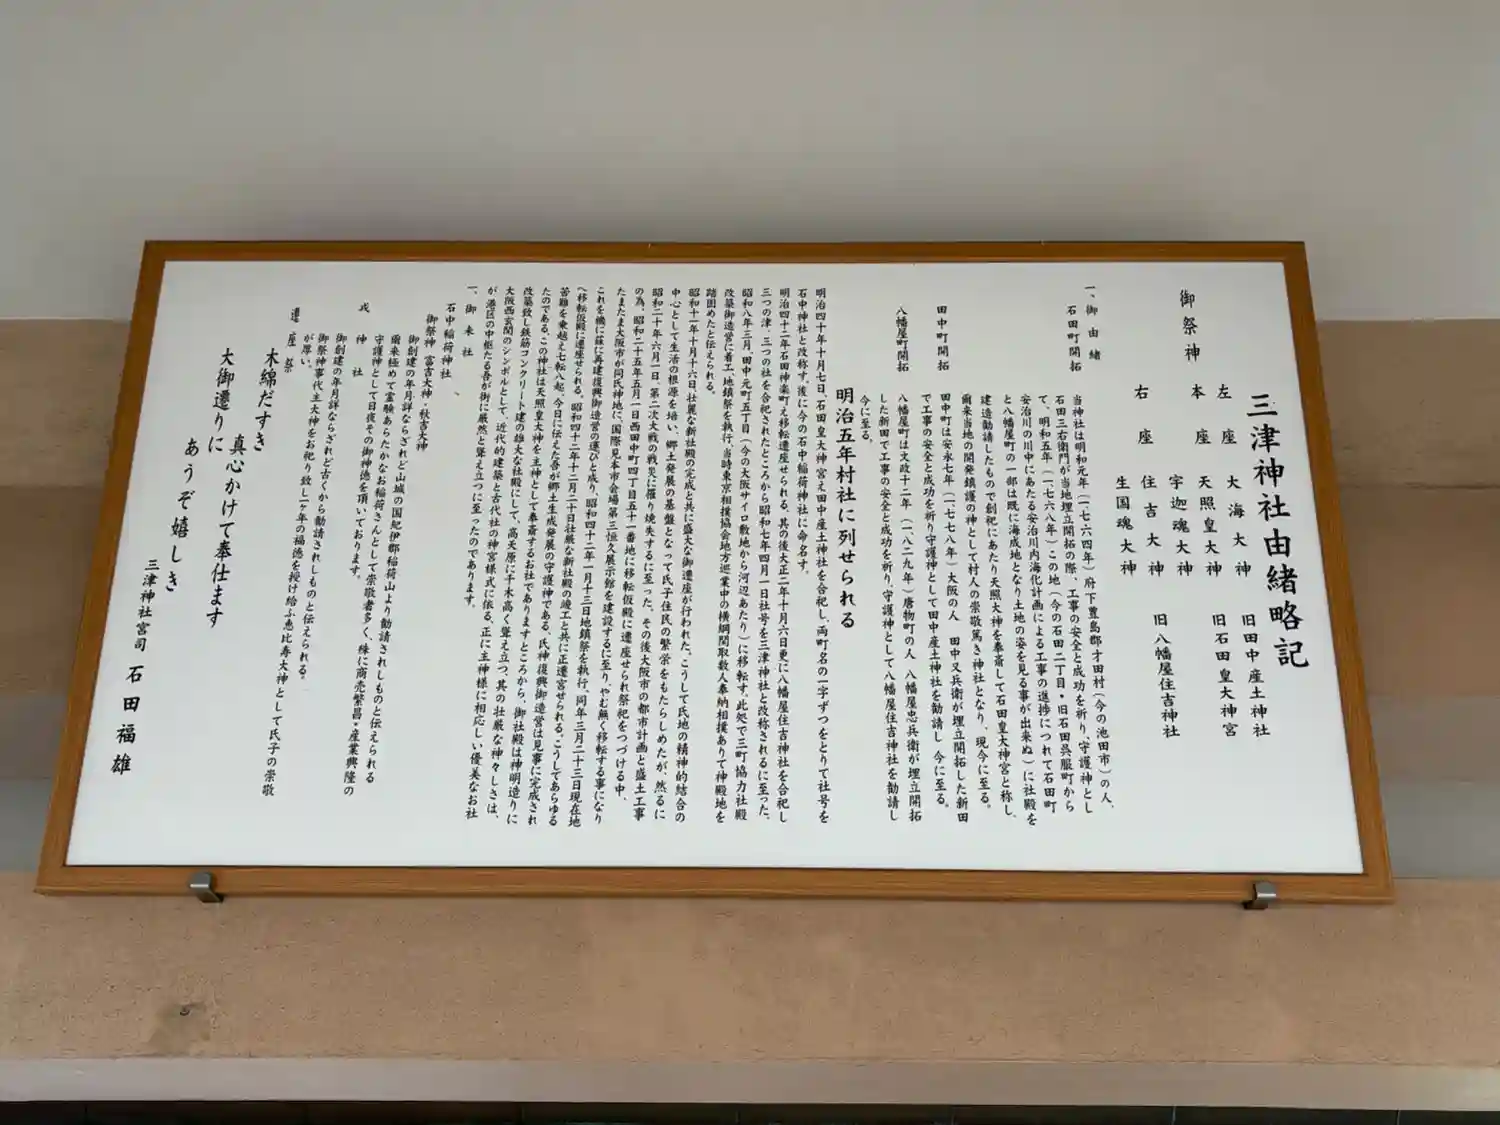 三津神社由緒略記
御祭神
左座 大海大神 旧田中産土神社
本座 天照皇大神 旧石田皇大神宮
宇迦魂大神
右座 住吉大神 旧八幡屋住吉神社
生国魂大神
一、御由緒
石田町開拓
当神社は明和元年(一七六四年)府下豊島郡才田村(今の池田市)の人、
石田三右衛門が当地埋立開拓の際、工事の安全と成功を祈り、守護神とし
て、明和五年(一七六八年)この地(今の石田二丁目・旧石田呉服町から
安治川の川中にあたる安治川内海化計画による工事の進捗につれて石田町
と八幡屋町の一部は既に海成地となり土地の姿を見る事が出来ぬ)に社殿を
建造勧請したもので創祀にあたり天照大神を奉斎して石田皇大神宮と称し、
爾来当地の開発鎮護の神として村人の崇敬篤き神社となり、現今に至る。
田中町開拓
田中町は安永七年(一七七八年)大阪の人 田中又兵衛が埋立開拓した新田
で工事の安全と成功を祈り守護神として田中産土神社を勧請し 今に至る。
八幡屋町開拓
八幡屋町は文政十二年(一八二九年)唐物町の人 八幡屋忠兵衛が埋立開拓
した新田で工事の安全と成功を祈り、守護神として八幡屋住吉神社を勧請し
今に至る。
明治五年村社に列せられる
明治四十年十月七日、石田皇大神宮え田中産土神社を合祀し、両町名の一字ずつをとりて社号を
石中神社と改称す。後に今の石中稲荷神社に命名す。
明治四十二年石田神楽町え移転遷座せられる、其の後大正二年十月六日更に八幡屋住吉神社を合祀し
三つの津、三つの社を合祀されたところから昭和七年四月一日社号を三津神社と改称されるに至った。
昭和八年三月、田中元町五丁目(今の大阪サイロ敷地から河辺あたり)に移転す。此処で三町協力社殿
改築御造営に着工、地鎮祭を執行、当時東京相撲協会地方巡業中の横綱関取数人奉納相撲ありて神殿地を
踏固めたと伝えられる。
昭和十一年十月十六日、壮麗な新社殿の完成と共に盛大な御遷座が行われた。こうして氏地の精神的結合の
中心として生活の根源を培い、郷土発展の基盤となって氏子住民の繁栄をもたらしめたが、然るに
昭和二十年六月一日、第二次大戦の戦災に罹り焼失するに至った。その後大阪市の都市計画と盛土工事
の為、昭和二十五年五月一日西田中町四丁目五十一番地に移転仮殿に遷座せられ祭祀をつづける中、
たまたま大阪市が同氏神地に、国際見本市会場第三恒久展示館を建設するに至り、やむ無く移転する事になり
これを機に茲に再建復興御造営の運びと成り、昭和四十二年一月十三日地鎮祭を執行、同年三月二十三日現在地
へ移転仮殿に遷座せられる。昭和四十二年十二月二十日社厳な新社殿の竣工と共に正遷宮せられる。こうしてあらゆる
苦難を乗越え七転八起、今日に伝えた吾が郷土生成発展の守護神である、氏神復興御造営は見事に完成され
たのである。この神社は天照皇大神を主神として奉斎するお社でありますところから、御社殿は神明造りに
改築致し鉄筋コンクリート建の雄大な社殿にして、高天原に千木高く聳え立つ、其の壮厳な神々しさは、
大阪西玄関のシンボルとして、近代的建築と古代社の神宮様式に依る、正に主神様に相応しい優美なお社
が、港区の中枢たる吾が街に厳然と聳え立つに至ったのであります。
一、御末社
石中稲荷神社
御祭神 富吉大神・秋吉大神
御創建の年月詳ならざれど山城の国紀伊郡稲荷山より勧請されしものと伝えられる
爾来極めて霊験あらたかなお稲荷さんとして崇敬者多く、殊に商売繁昌・産業興隆の
守護神として日夜その御神徳を頂いております。
戎神社
御創建の年月詳ならざれど古くから勧請されしものと伝えられる、
御祭神事代主大神をお祀り致し一ケ年の福徳を授け給ふ恵比寿大神として氏子の崇敬
が厚い。
遷座祭
木綿だすき 真心かけて奉仕ます
大御遷りに あうぞ嬉しき
三津神社宮司 石田福雄